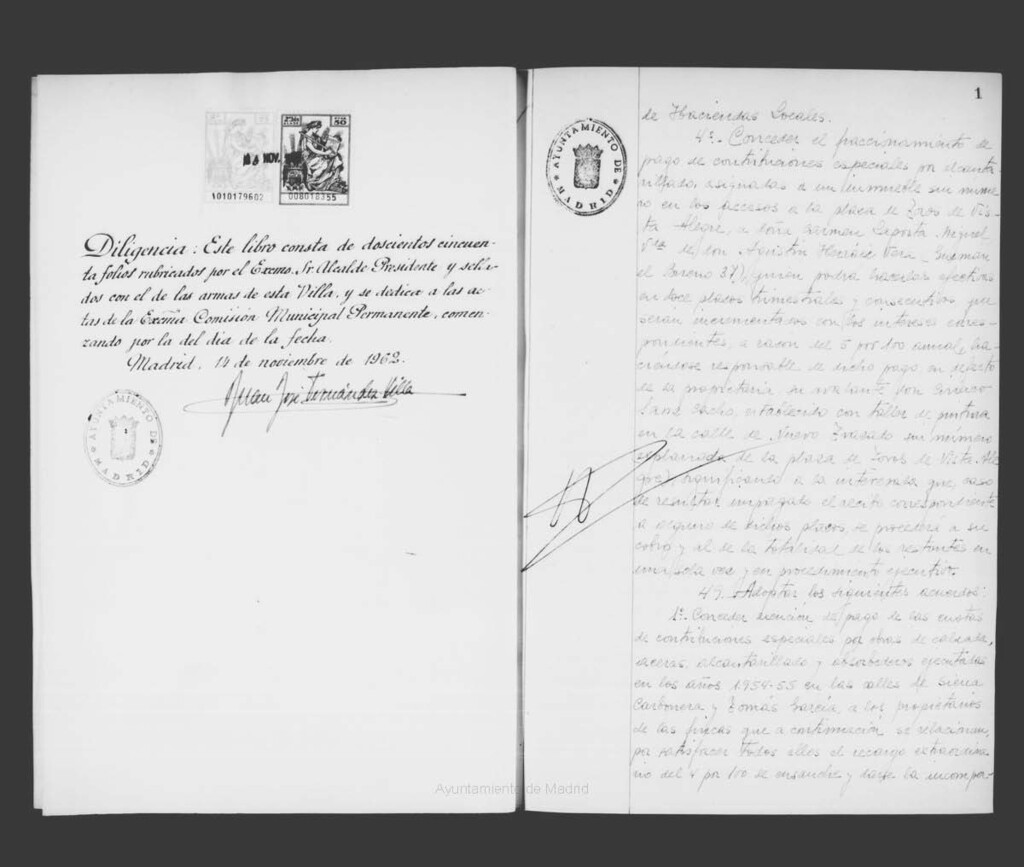 14 NOV.
1010179602
008018355
Diligencia: Este libro consta de doscientos cincuen-
ta folios rubricados por el Excmo. Sr. Alcalde Presidente y sella-
dos con el de las armas de esta Villa, y se dedica a las ac-
tas de la Excma Comisión Municipal Permanente, comen-
zando por la del día de la fecha.
Madrid, 14 de noviembre de 1962.
Juan José Fernández-Villa
AYUNTAMIENTO DE MADRID
1
1
AYUNTAMIENTO DE MADRID
de Haciendas Locales.
4º.- Conceder el fraccionamiento de
pago de contribuciones especiales por alcanta-
rillado, asignadas a un inmueble sin núme-
ro en los accesos a la plaza de Toros de Vis-
ta Alegre, a doña Carmen Laposta Miguel
de don Agustín Guzmán
el Bueno 37), quien podrá hacerlas efectivas
en doce plazos trimestrales y consecutivos que
serán incrementados con los intereses corres-
pondientes, a razón del 5 por 100 anual, ha-
ciéndose responsable de dicho pago en defecto
de la propietaria, su don
establecido con taller de pintura
en la calle de Nuevo Trazado sin número
explanada de la plaza de Toros de Vista Ale-
gre), significando a la interesada que, caso
de resultar impagado el recibo correspondiente
a alguno de dichos plazos, se procederá a su
cobro y al de la totalidad de los restantes en
una sola vez y en procedimiento ejecutivo.
47. Adoptar los siguientes acuerdos:
1º.- Conceder exención del pago de las cuotas
de contribuciones especiales por obras de calzada,
aceras, alcantarillado y absorbederos ejecutadas
en los años 1954-55 en las calles de Sierra
Carbonera y Tomás García, a los propietarios
de las fincas que a continuación se relacionan,
por satisfacer todos ellos el recargo extraordina-
rio del 4 por 100 de ensanche y darse la incompa-
Ayuntamiento de Madrid